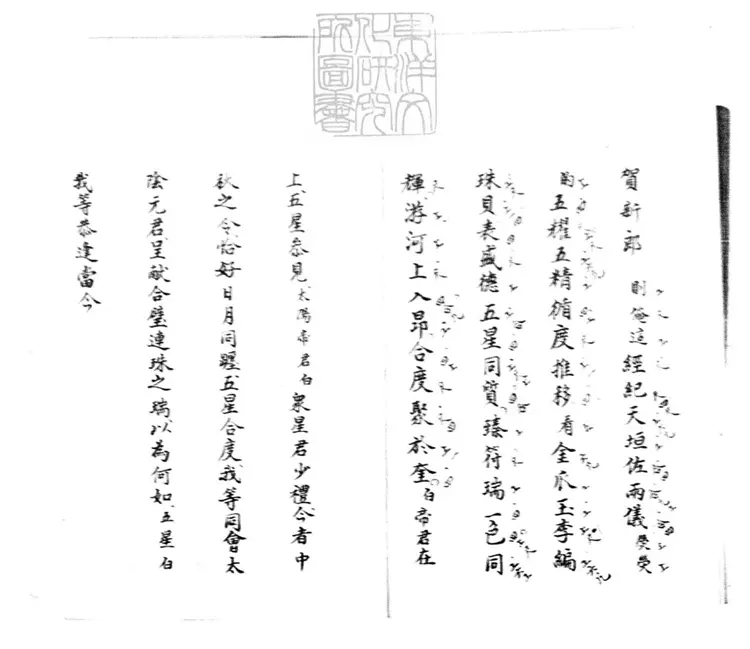 東洋文
化研究
所圖書
賀新郎 則俺這經紀天垣佐兩儀燮燮
的五耀五精循度推移看金瓜玉李編
珠貝表盛德五星同質臻符瑞一色同
輝游河上入昴合度聚於奎白帝君在
上五星叅見太陽帝君白衆星君少禮今者中
秋之令恰好日月同躔五星合度我等同會太
陰元君呈献合璧連珠之瑞以為何如五星白
我等恭逢當今